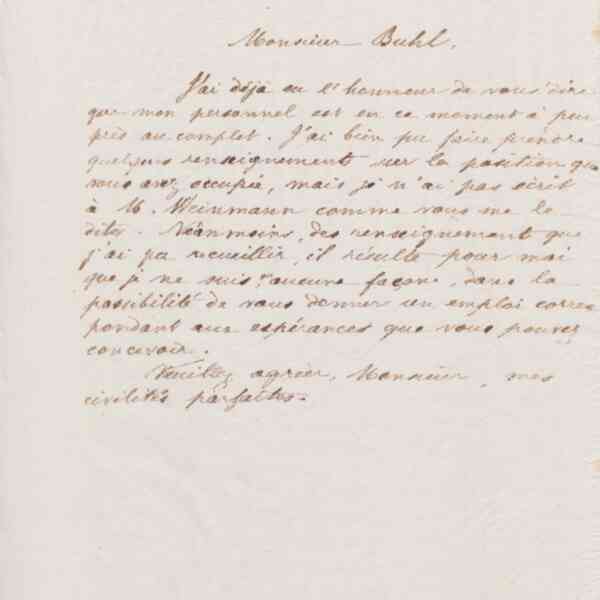 Monsieur Buhl.
J'ai déjà eu l'honneur de vous dire
que mon personnel est en ce moment à peu
près au complet. J'ai bien pu faire prendre
quelques renseignement sur la position que
vous avez occupée, mais je n'ai pas écrit
à M. Weinmann comme vous me le
dites. Néanmoins, des renseignement que
j'ai pu recueillir, il résulte pour moi
que je ne suis d'aucune façon, dans la
possibilité de vous donner un emploi corres
pondant aux espérances que vous pouvez
concevoir.
Veuillez agréer, Monsieur, mes
civilités parfaites.